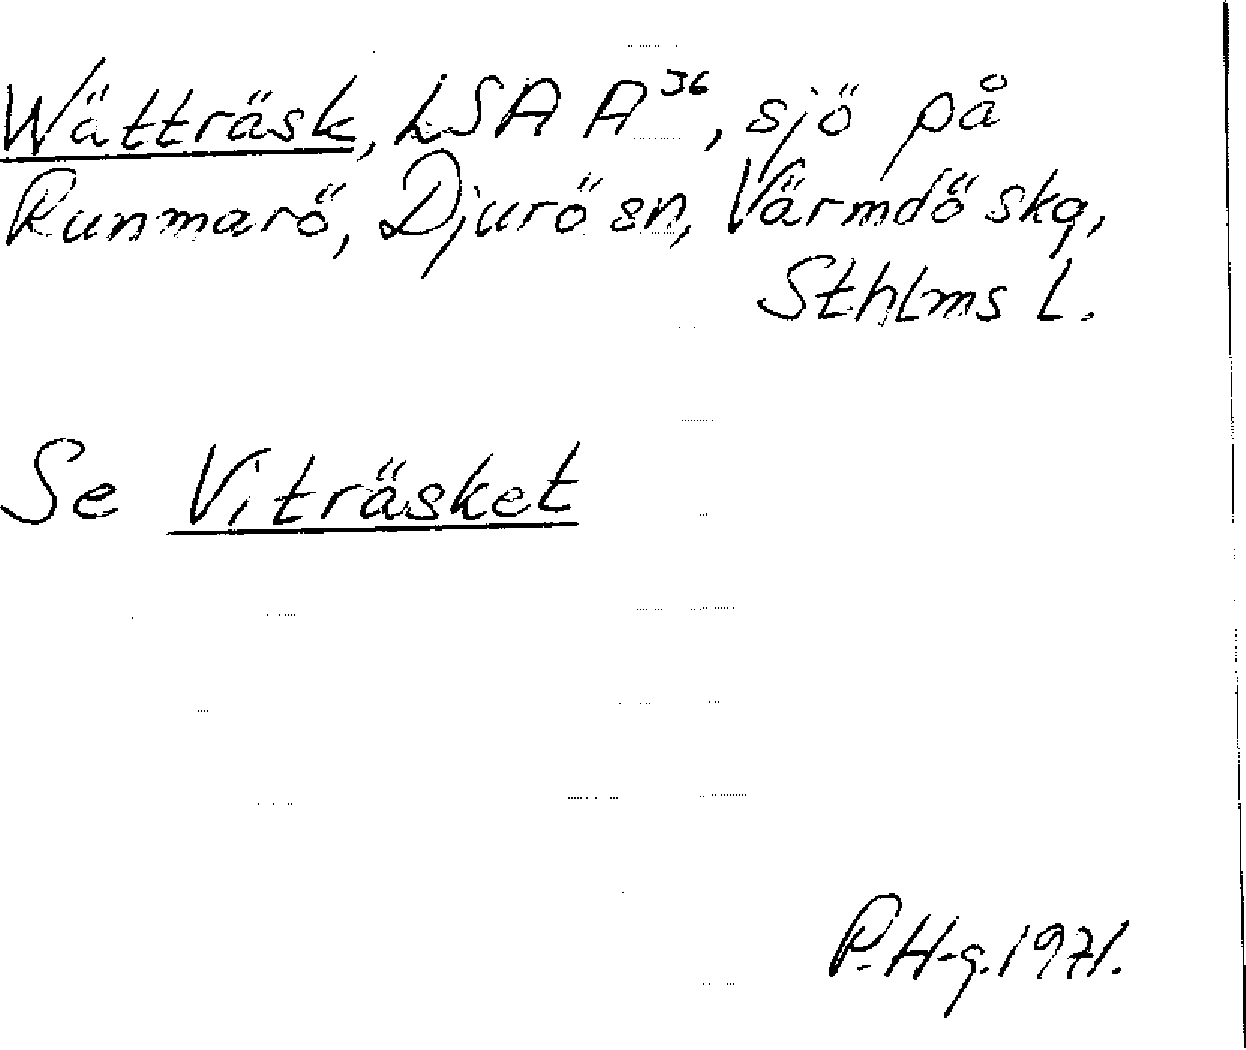 Wätträsk, LSA A³⁶, sjö på
Runmarö, Djurö sn, Värmdö skg,
Sthlms l.
Se Viträsket
P. H-g. 1971.